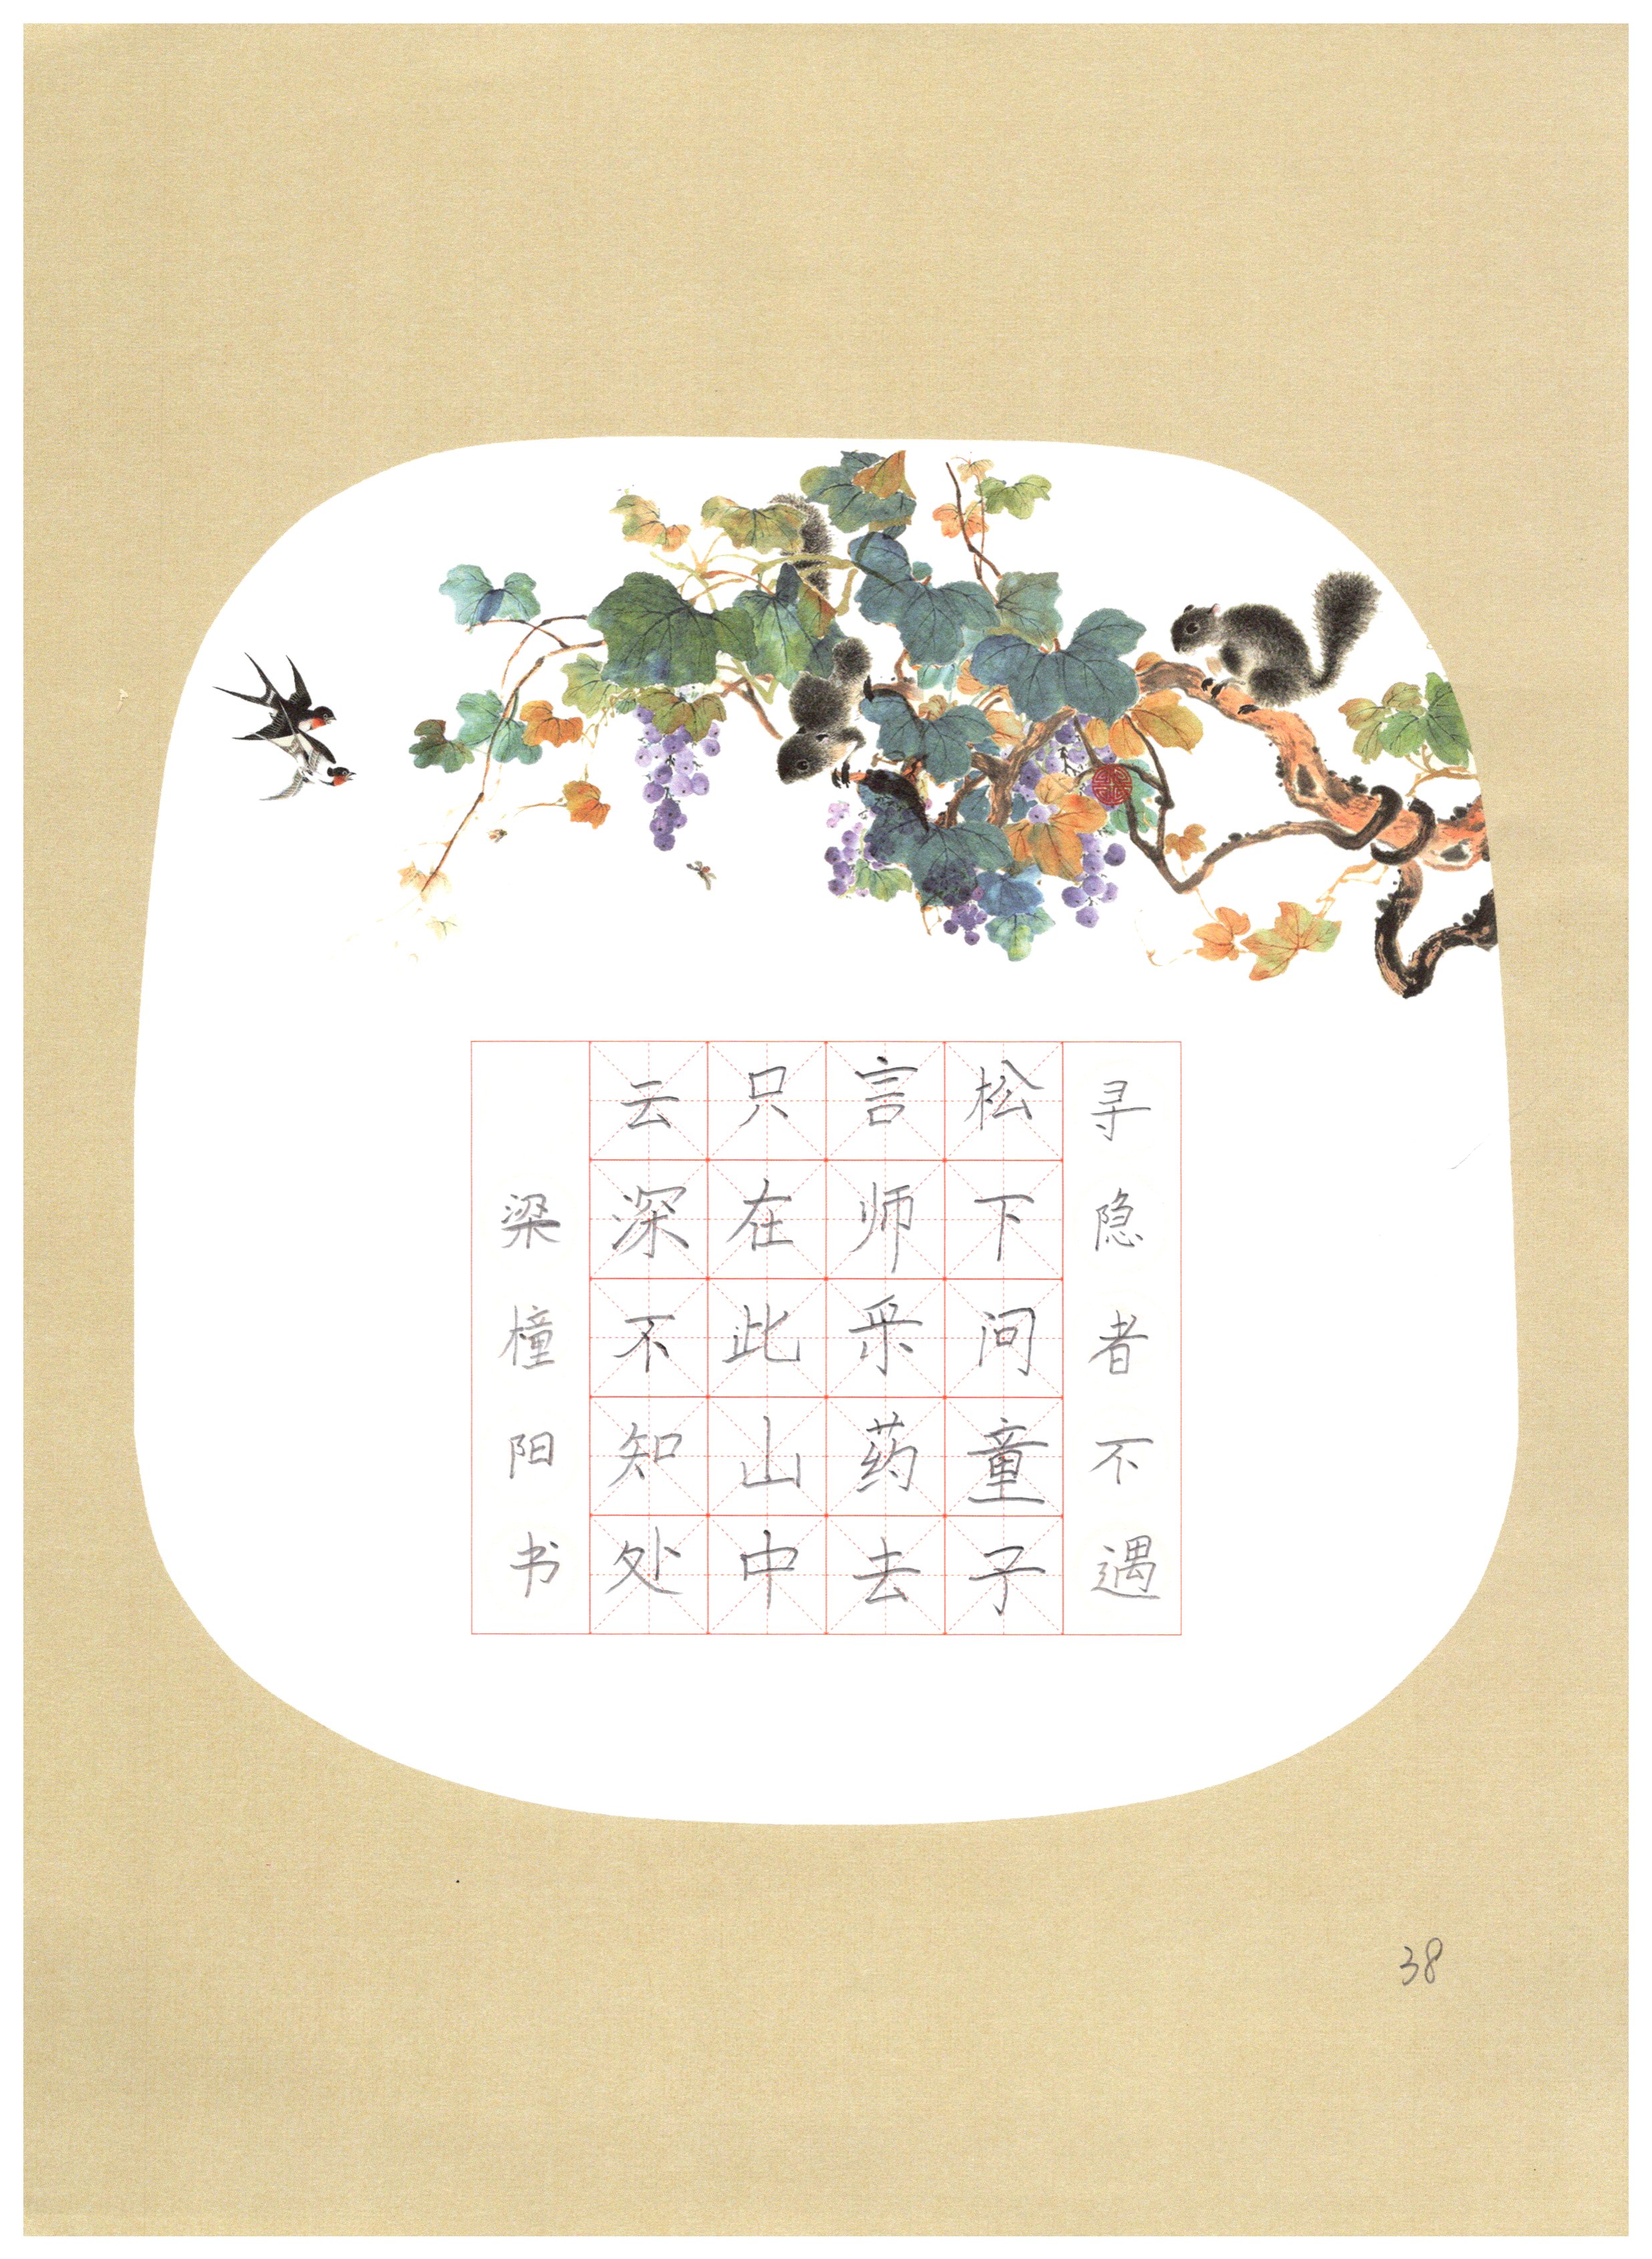 寻隐者不遇
松下问童子
言师采药去
只在此山中
云深不知处
梁橦阳书
38